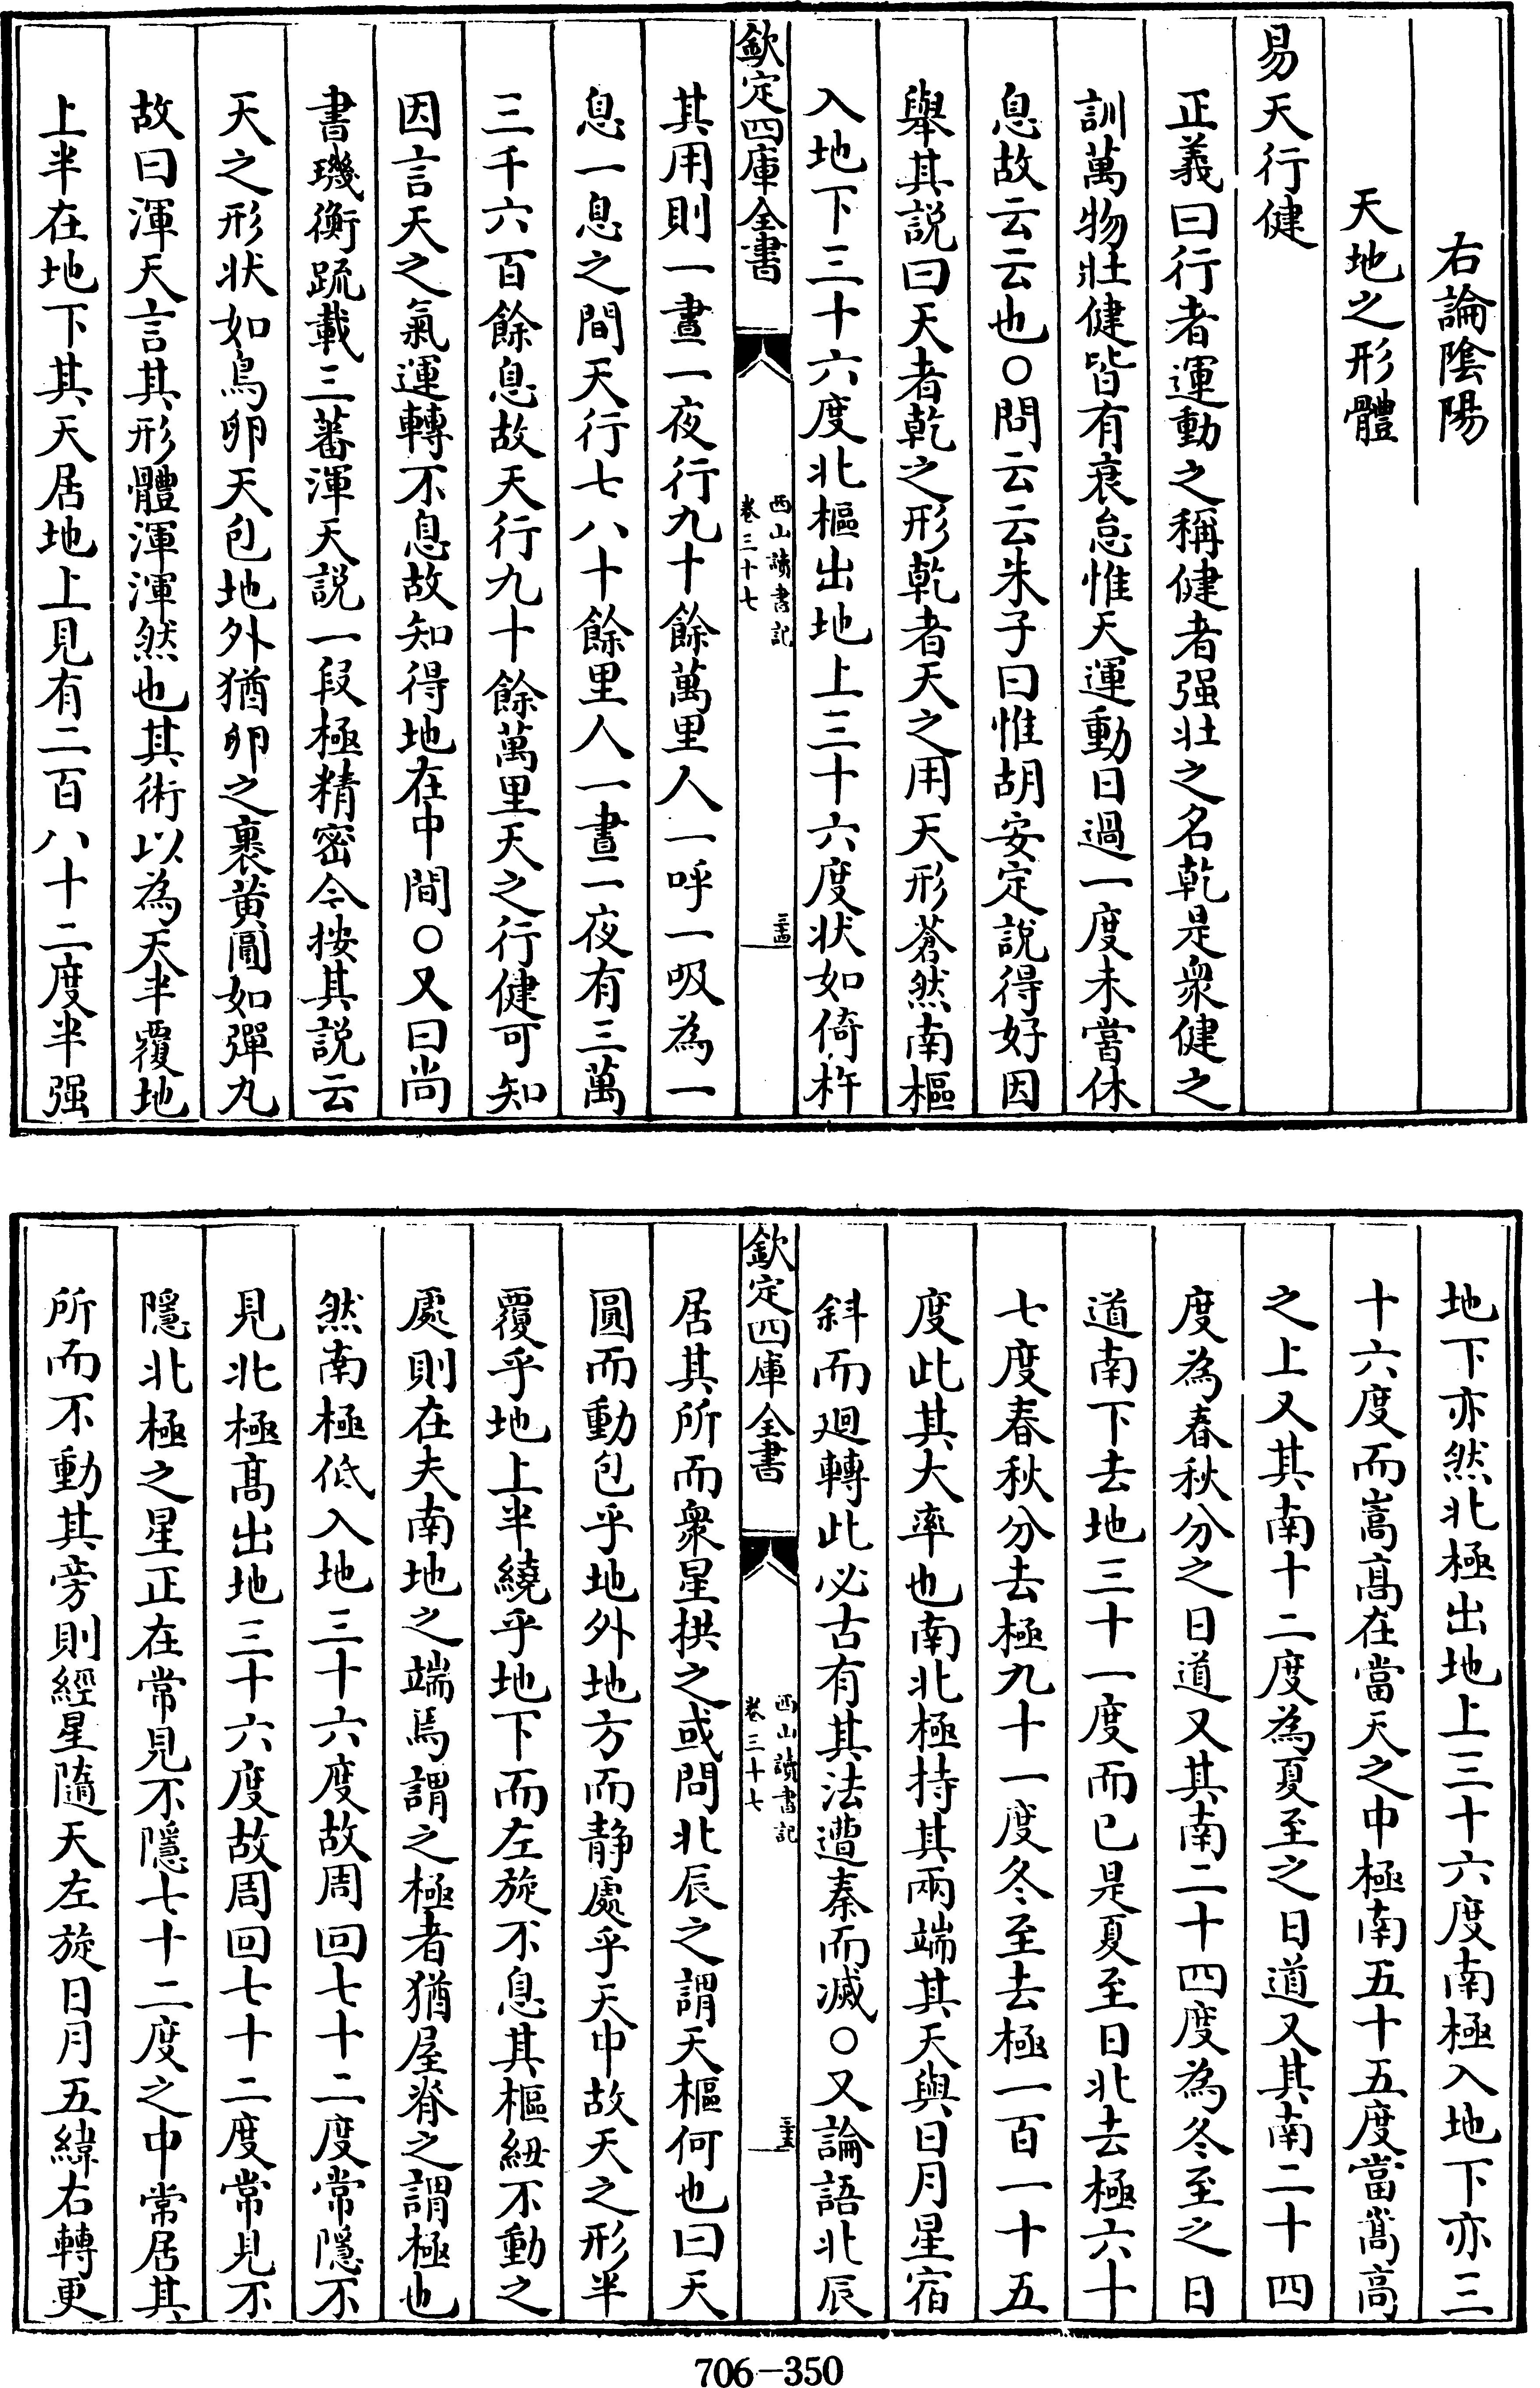 右論隂陽
天地之形體
易天行健
正義曰行者運動之稱健者强壯之名乾是衆健之
訓萬物壯健皆有衰怠惟天運動日過一度未嘗休
息故云云也○問云云朱子曰惟胡安定說得好因
舉其説曰天者乾之形乾者天之用天形蒼然南樞
入地下三十六度北樞出地上三十六度狀如倚杵
欽定四庫全書
西山讀書記
卷三十七
三十四
其用則一晝一夜行九十餘萬里人一呼一吸為一
息一息之間天行七八十餘里人一晝一夜有三萬
三千六百餘息故天行九十餘萬里天之行健可知
因言天之氣運轉不息故知得地在中間○又曰尚
書璣衡疏載三蕃渾天説一段極精密今按其説云
天之形狀如鳥卵天包地外猶卵之裹黄圓如彈丸
故曰渾天言其形體渾渾然也其術以為天半覆地
上半在地下其天居地上見有二百八十二度半强
地下亦然北極出地上三十六度南極入地下亦三
十六度而嵩髙在當天之中極南五十五度當嵩高
之上又其南十二度為夏至之日道又其南二十四
度為春秋分之日道又其南二十四度為冬至之日
道南下去地三十一度而已是夏至日北去極六十
七度春秋分去極九十一度冬至去極一百一十五
度此其大率也南北極持其兩端其天與日月星宿
斜而廻轉此必古有其法遭秦而滅○又論語北辰
欽定四庫全書
西山讀書記
卷三十七
三十五
居其所而衆星拱之或問北辰之謂天樞何也曰天
圓而動包乎地外地方而静處乎天中故天之形半
覆乎地上半繞乎地下而左旋不息其樞紐不動之
處則在夫南地之端焉謂之極者猶屋脊之謂極也
然南極低入地三十六度故周回七十二度常隱不
見北極髙出地三十六度故周回七十二度常見不
隱北極之星正在常見不隱七十二度之中常居其
所而不動其旁則經星隨天左旋日月五緯右轉更
706-350